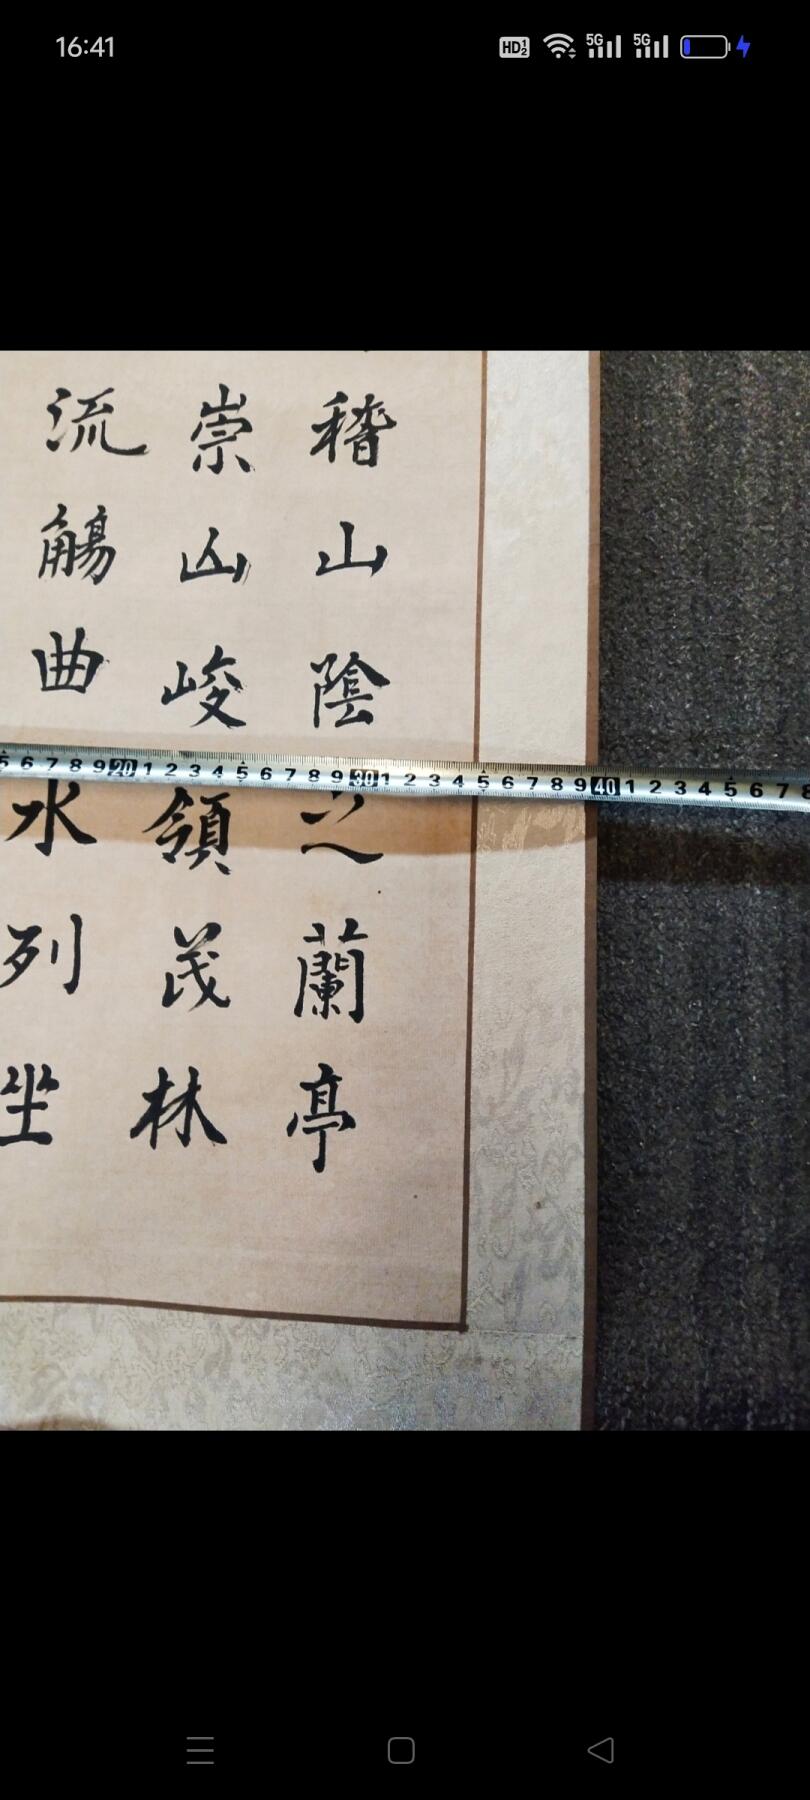 16:41
HD 1 2
5G
5G
稽山陰之蘭亭
崇山峻領茂林
流觴曲水列坐
5 6 7 8 9 20 1 2 3 4 5 6 7 8 9 30 1 2 3 4 5 6 7 8 9 40 1 2 3 4 5 6 7 8